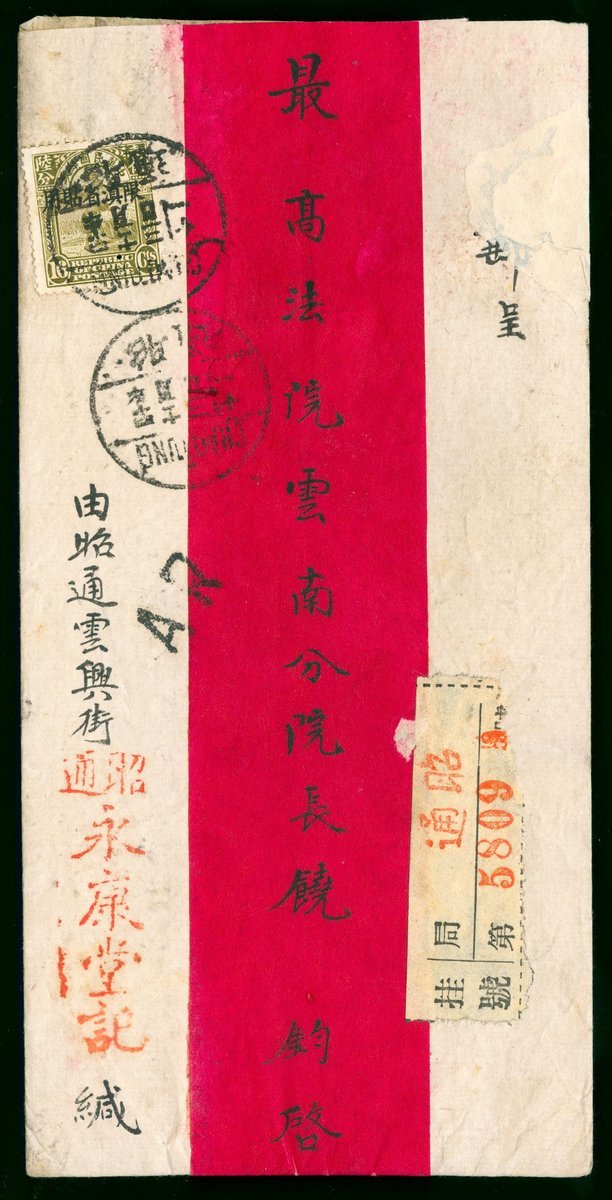 最高法院雲南分院長饒 鈞啓
呈
挂號
局
通昭
第
5809
限滇省貼用
16 Cts
REPUBLIC
OF CHINA
POSTAGE
十月
CHAOTUNG
昭
十月
A.R
由昭通雲興街
昭通
永康堂記
緘